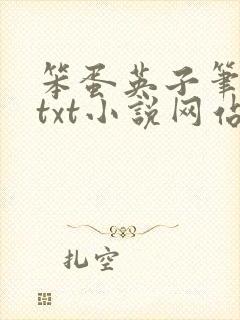 笨蛋英子筆
txt小說网佔
扎空